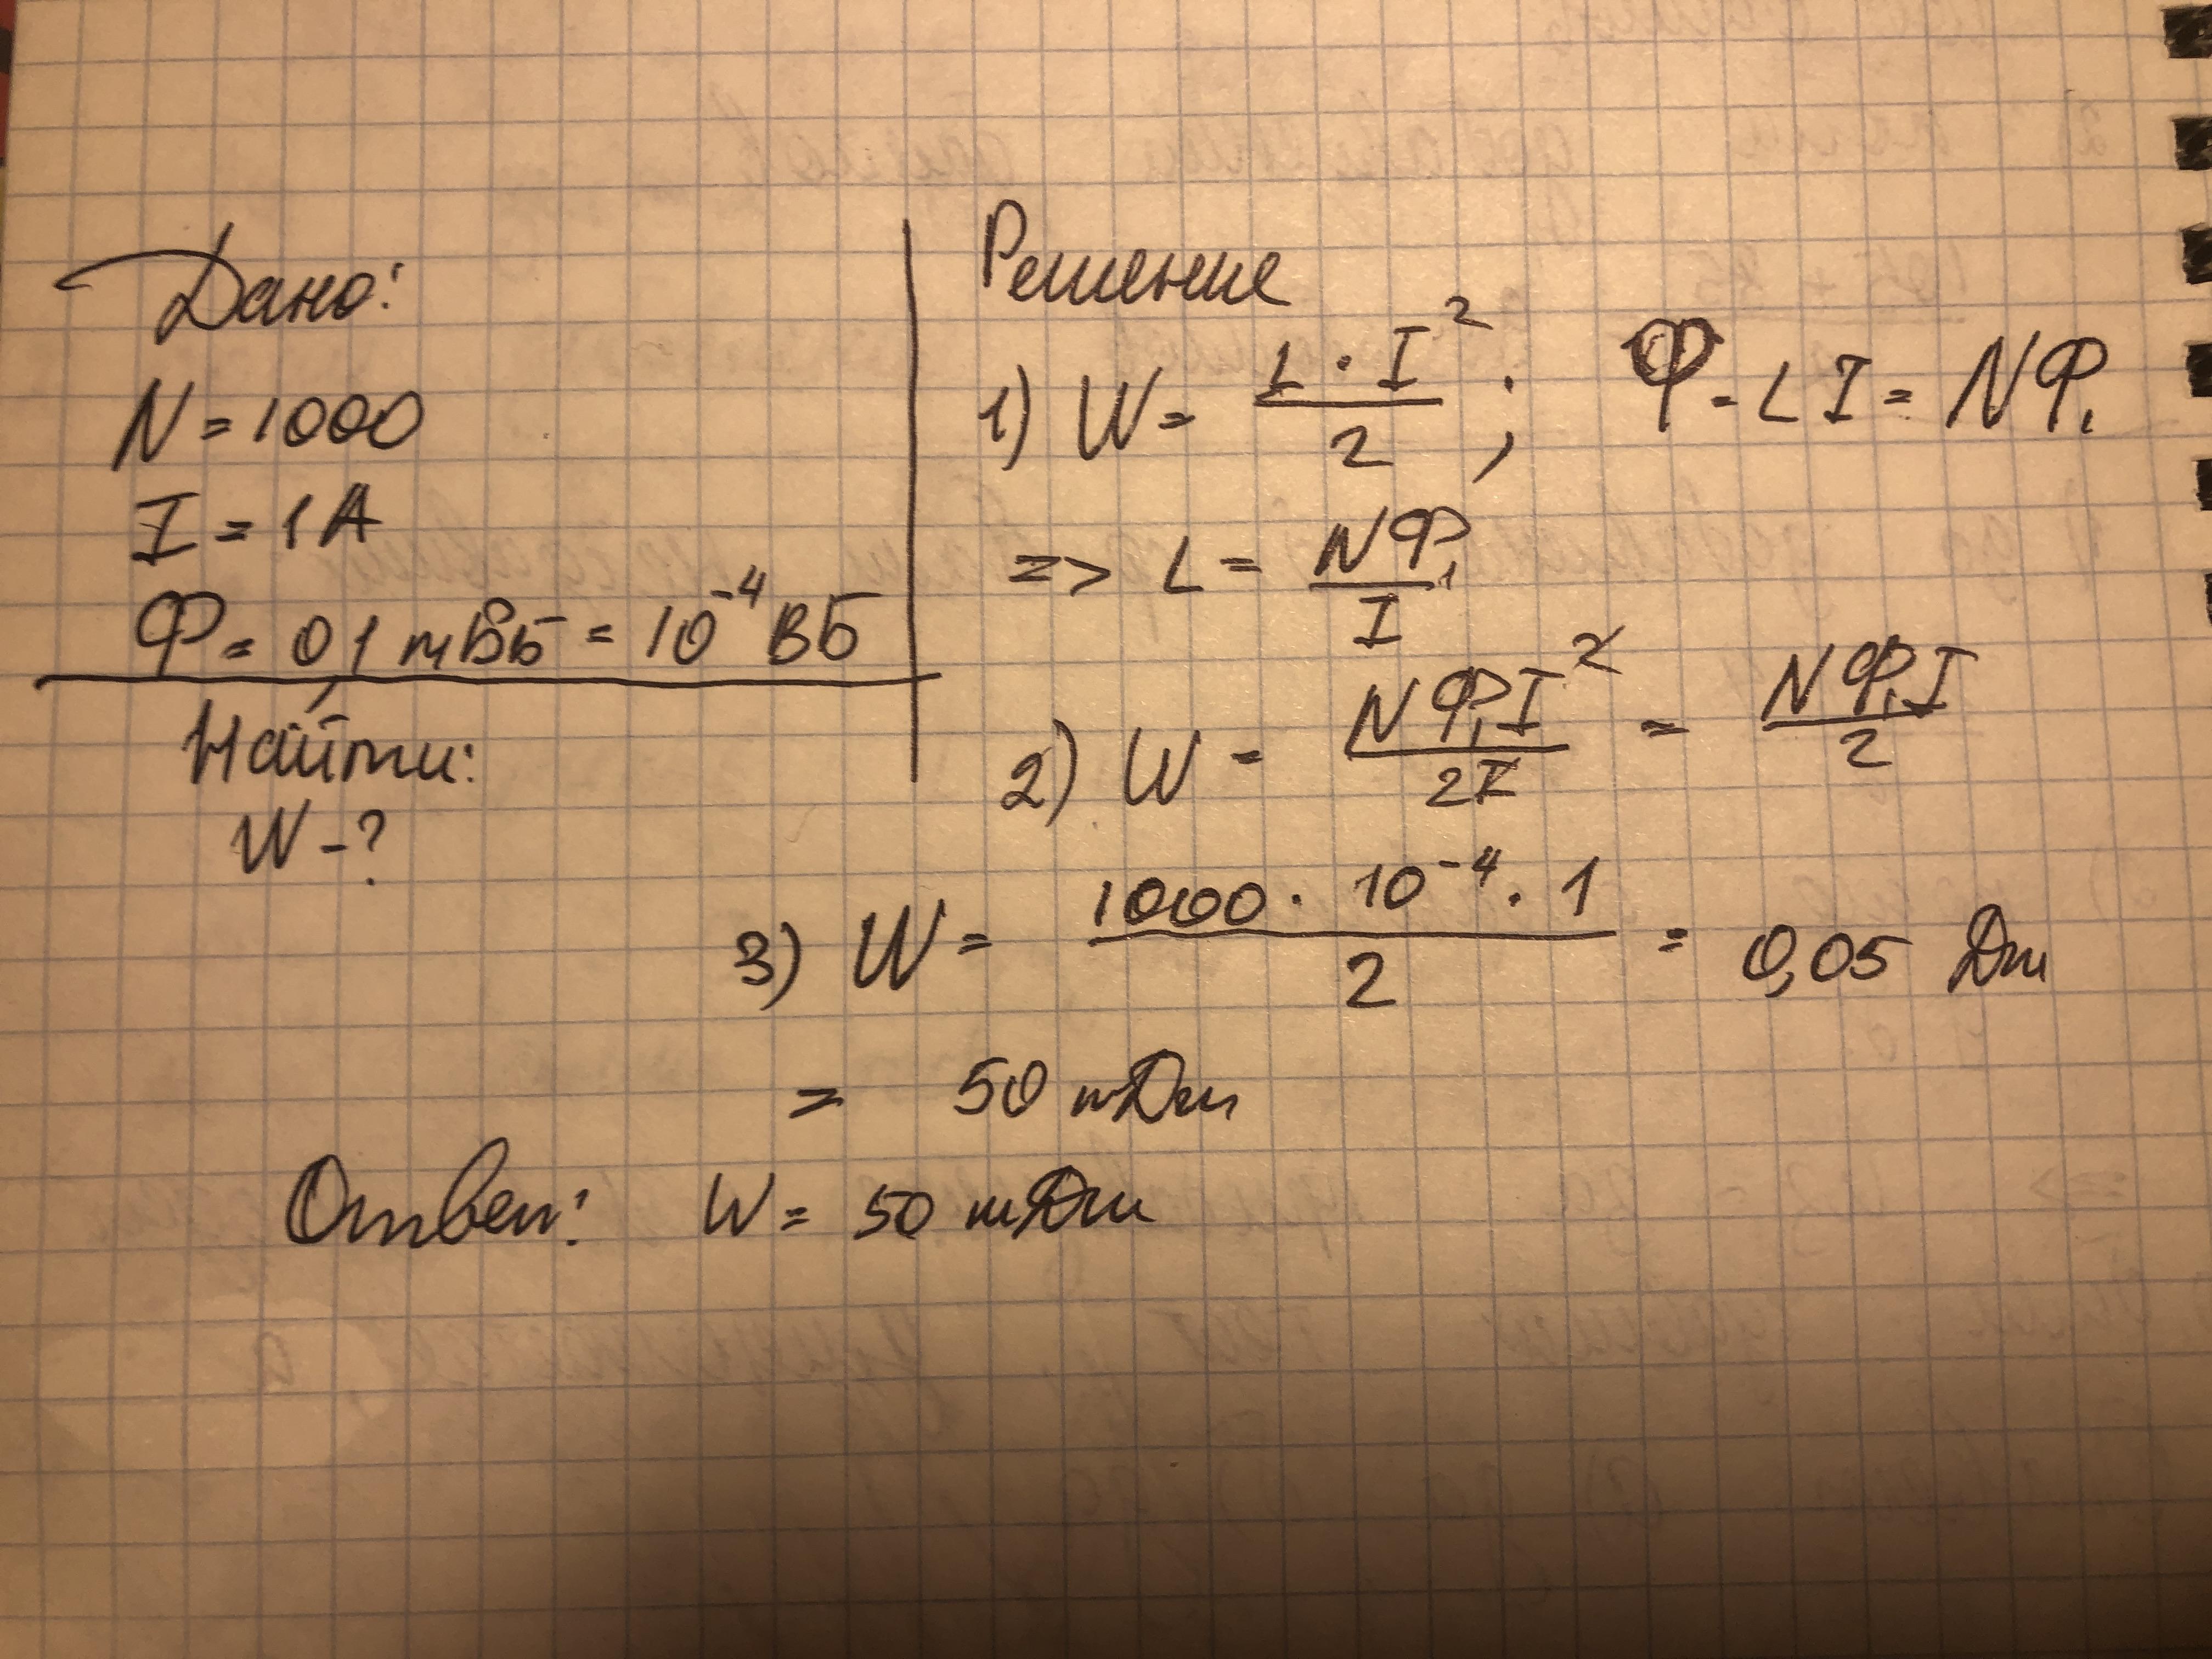 Дано:
N = 1000
I = 1 A
Ф = 0,1 мВб = 10⁻⁴ Вб
Найти:
W - ?
Решение
1) W = L · I² / 2 ; Ф = LI = NФ₁
=> L = NФ₁ / I
2) W = NФ₁I² / 2I = NФ₁I / 2
3) W = 1000 · 10⁻⁴ · 1 / 2 = 0,05 Дж
= 50 мДж
Ответ: W = 50 мДж